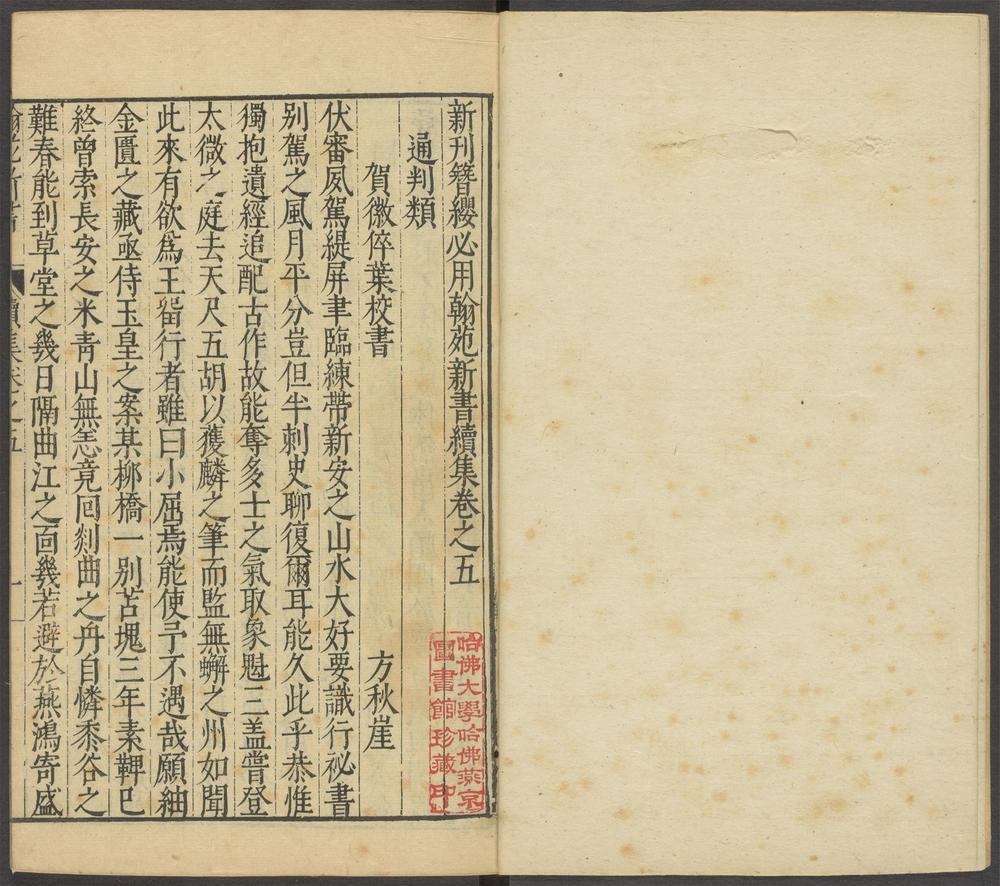 新刊簪纓必用翰苑新書續集卷之五
通判類
賀徽倅葉校書　方秋崖
伏審夙駕緹屏聿臨練帶新安之山水大好要識行祕書
别駕之風月平分豈但半刺史聊復爾耳能久此乎恭惟
獨抱遺經追配古作故能奪多士之氣取象魁三盖嘗登
太微之庭去天尺五胡以獲麟之筆而監無蠏之州如聞
此來有欲爲王留行者雖曰小屈焉能使予不遇哉願紬
金匱之藏亟侍玉皇之案某柳橋一别苫塊三年素鞸已
終曾索長安之米靑山無恙竟囘剡曲之舟自憐黍谷之
難春能到草堂之幾日隔曲江之面幾若避於燕鴻寄盛
續集卷之五　一
哈佛大學哈佛燕京
圖書館珍藏印